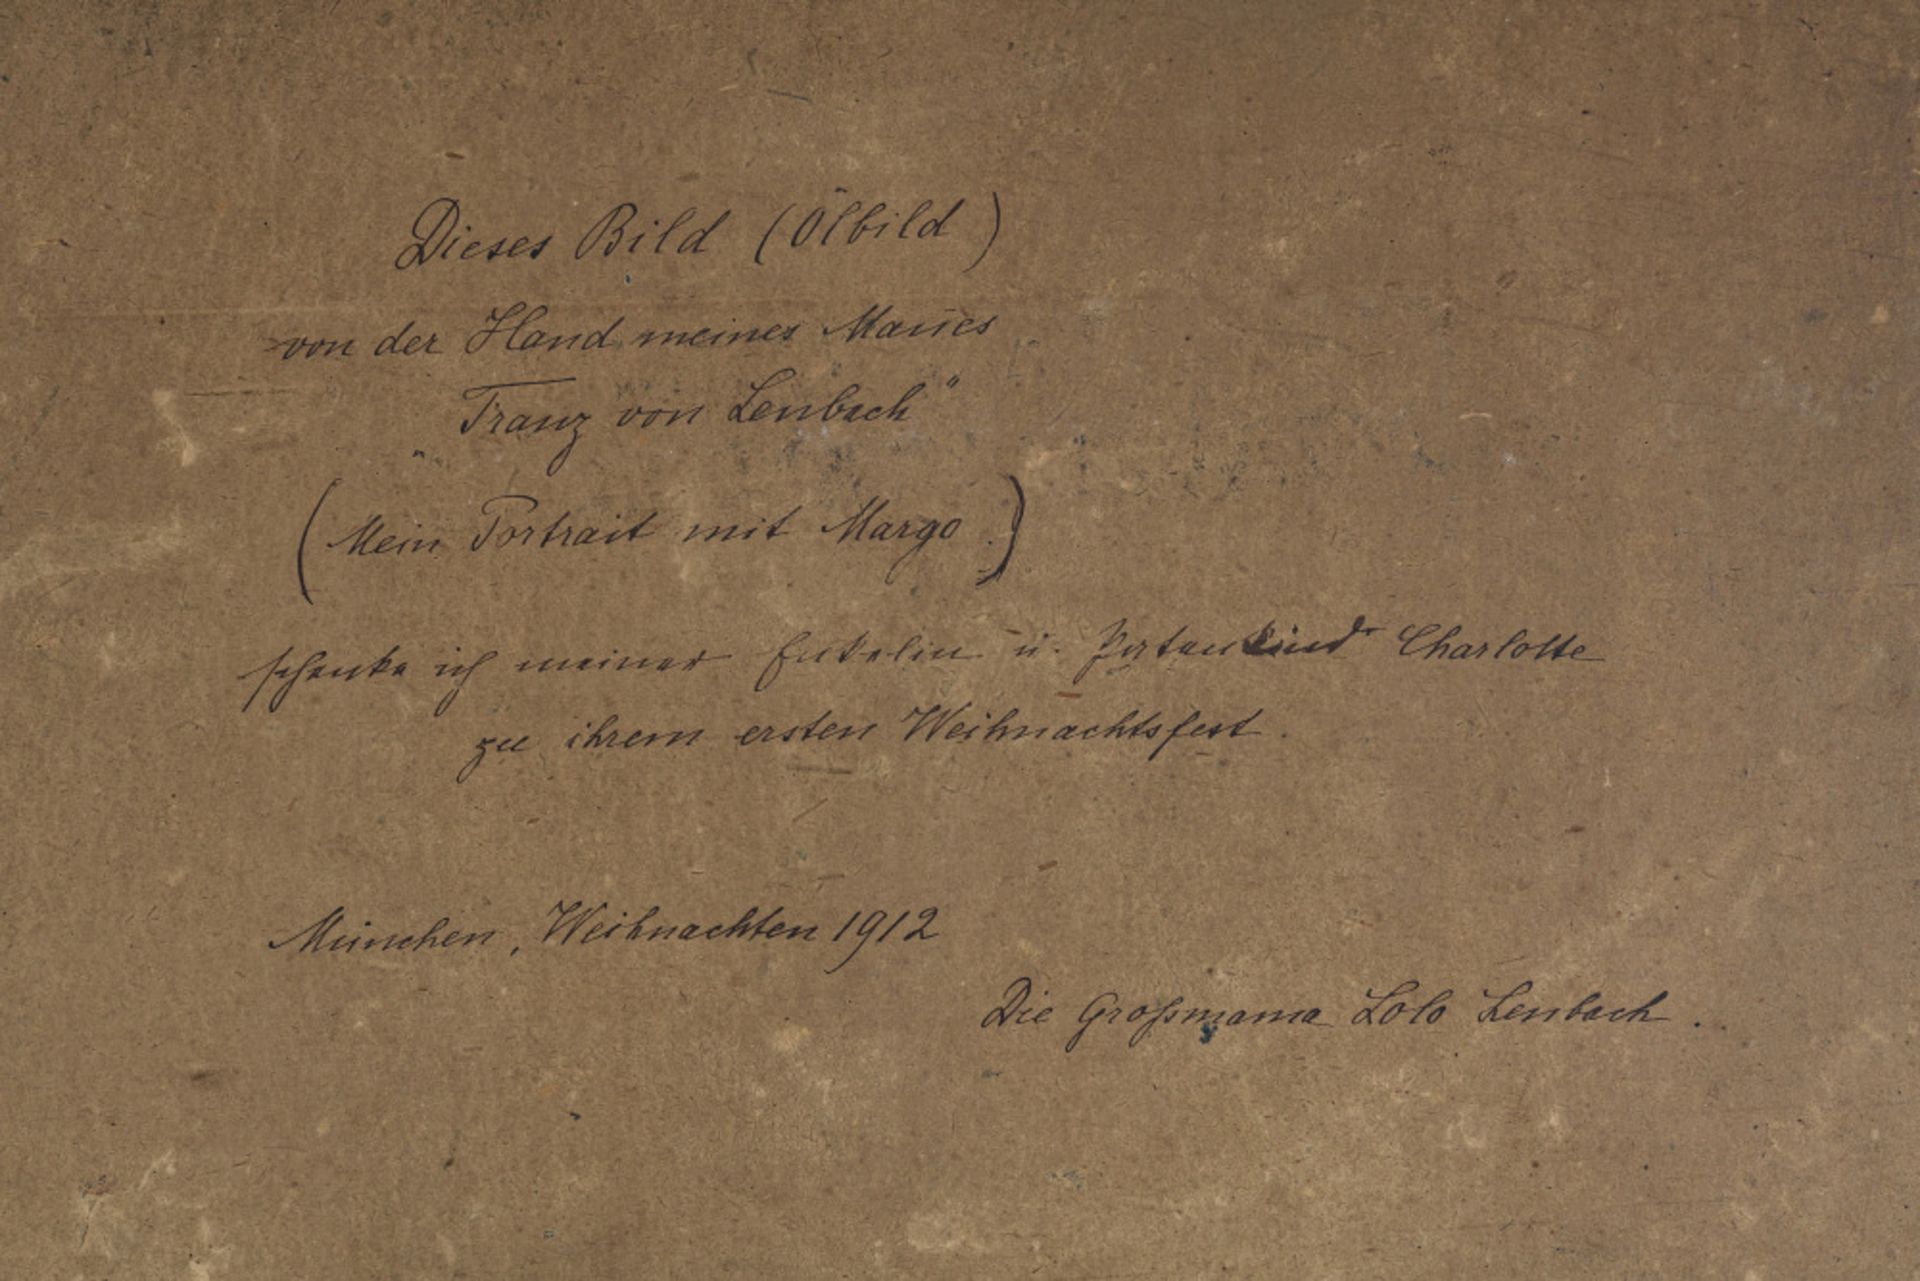 Dieses Bild (Ölbild)
von der Hand meines Mañes
„Franz von Lenbach"
(Mein Portrait mit Margo.)
schenke ich meiner Enkelin u. Patenkind Charlotte
zu ihrem ersten Weihnachtsfest.
München, Weihnachten 1912
Die Großmama Lolo Lenbach.